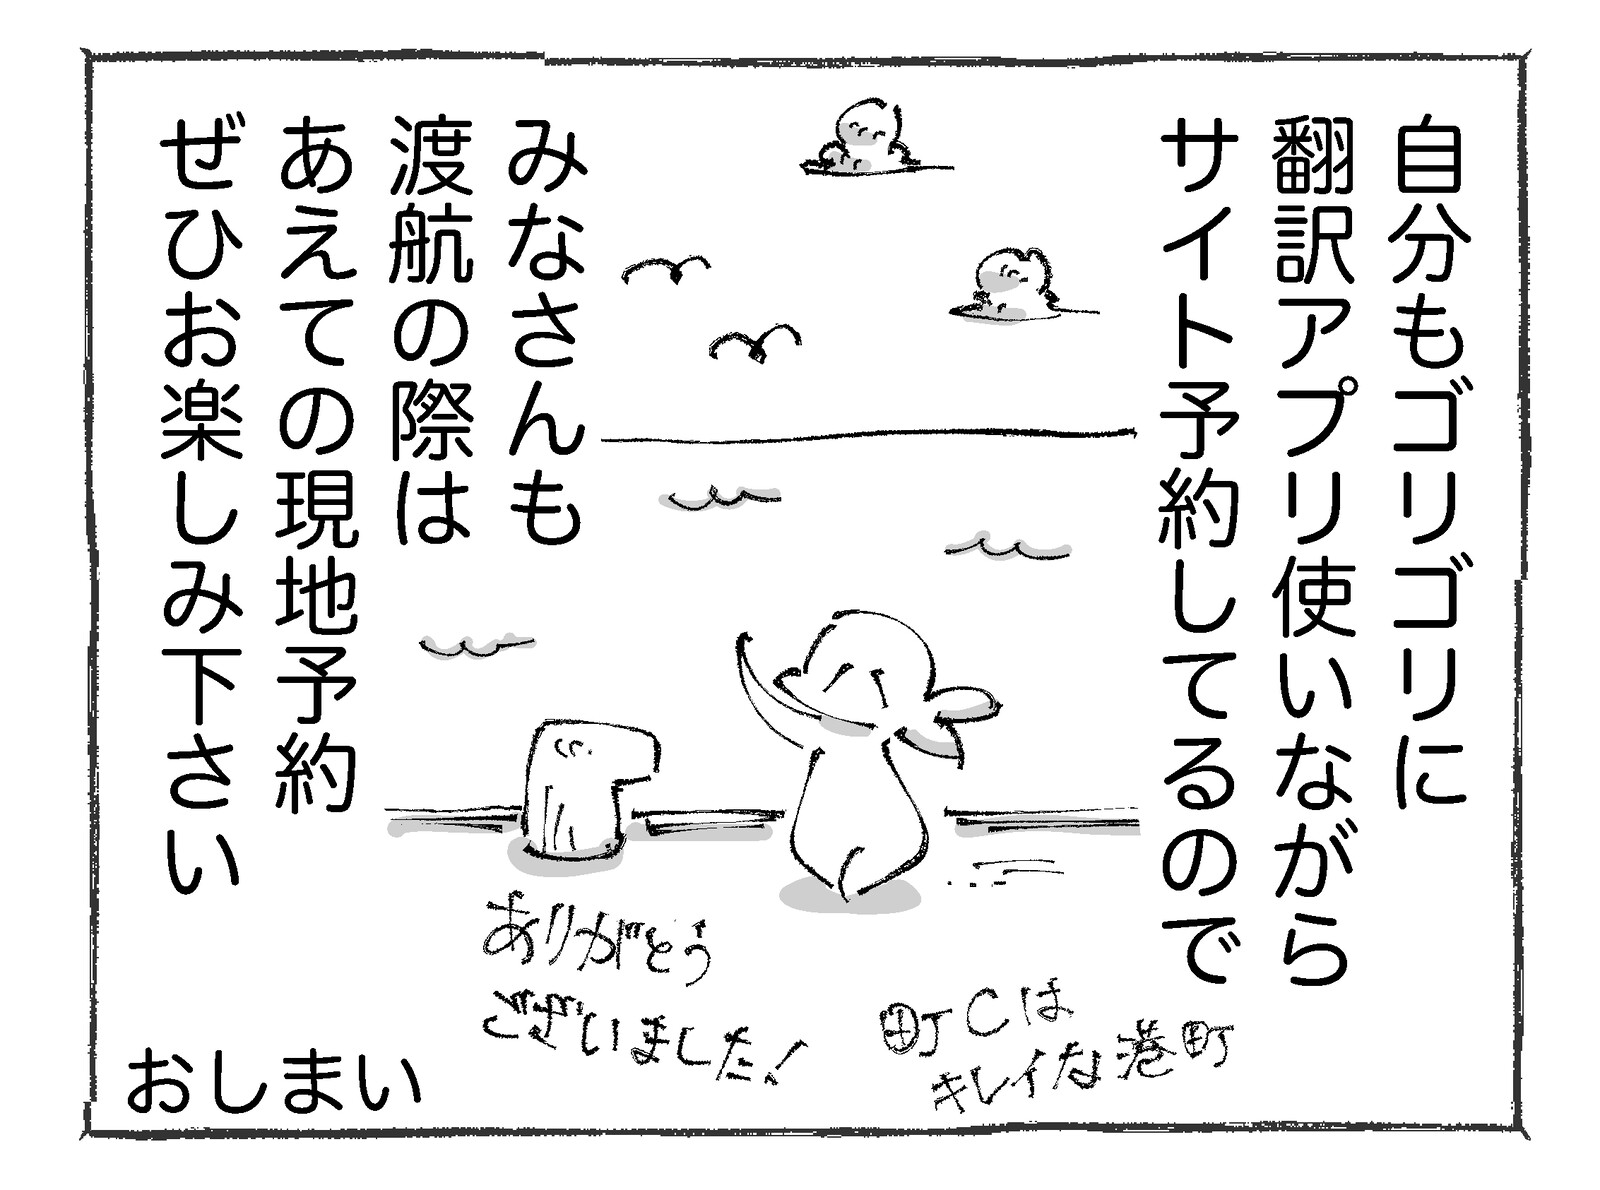 自分もゴリゴリに
翻訳アプリ使いながら
サイト予約してるので
みなさんも
渡航の際は
あえての現地予約
ぜひお楽しみ下さい
ありがとう
ございました!
町Cは
キレイな港町
おしまい